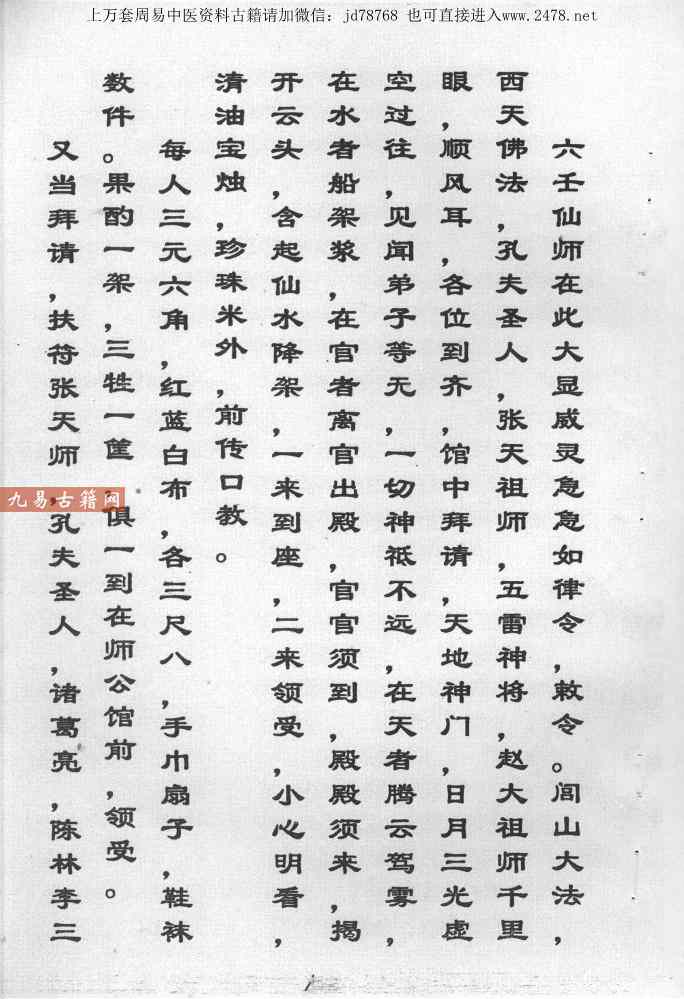 上万套周易中医资料古籍请加微信：jd78768 也可直接进入www.2478.net
六壬仙师在此大显威灵急急如律令，敕令。闾山大法，
西天佛法，孔夫圣人，张天祖师，五雷神将，赵大祖师千里
眼，顺风耳，各位到齐，馆中拜请，天地神门，日月三光虚
空过往，见闻弟子等无，一切神祇不远，在天者腾云驾雾，
在水者船架浆，在官者离官出殿，官官须到，殿殿须来，揭
开云头，含起仙水降架，一来到座，二来领受，小心明看，
清油宝烛，珍珠米外，前传口教。
每人三元六角，红蓝白布，各三尺八，手巾扇子，鞋袜
数件。果酌一架，三牲一筐，俱一到在师公馆前，领受。
又当拜请，扶符张天师，孔夫圣人，诸葛亮，陈林李三
九易古籍网